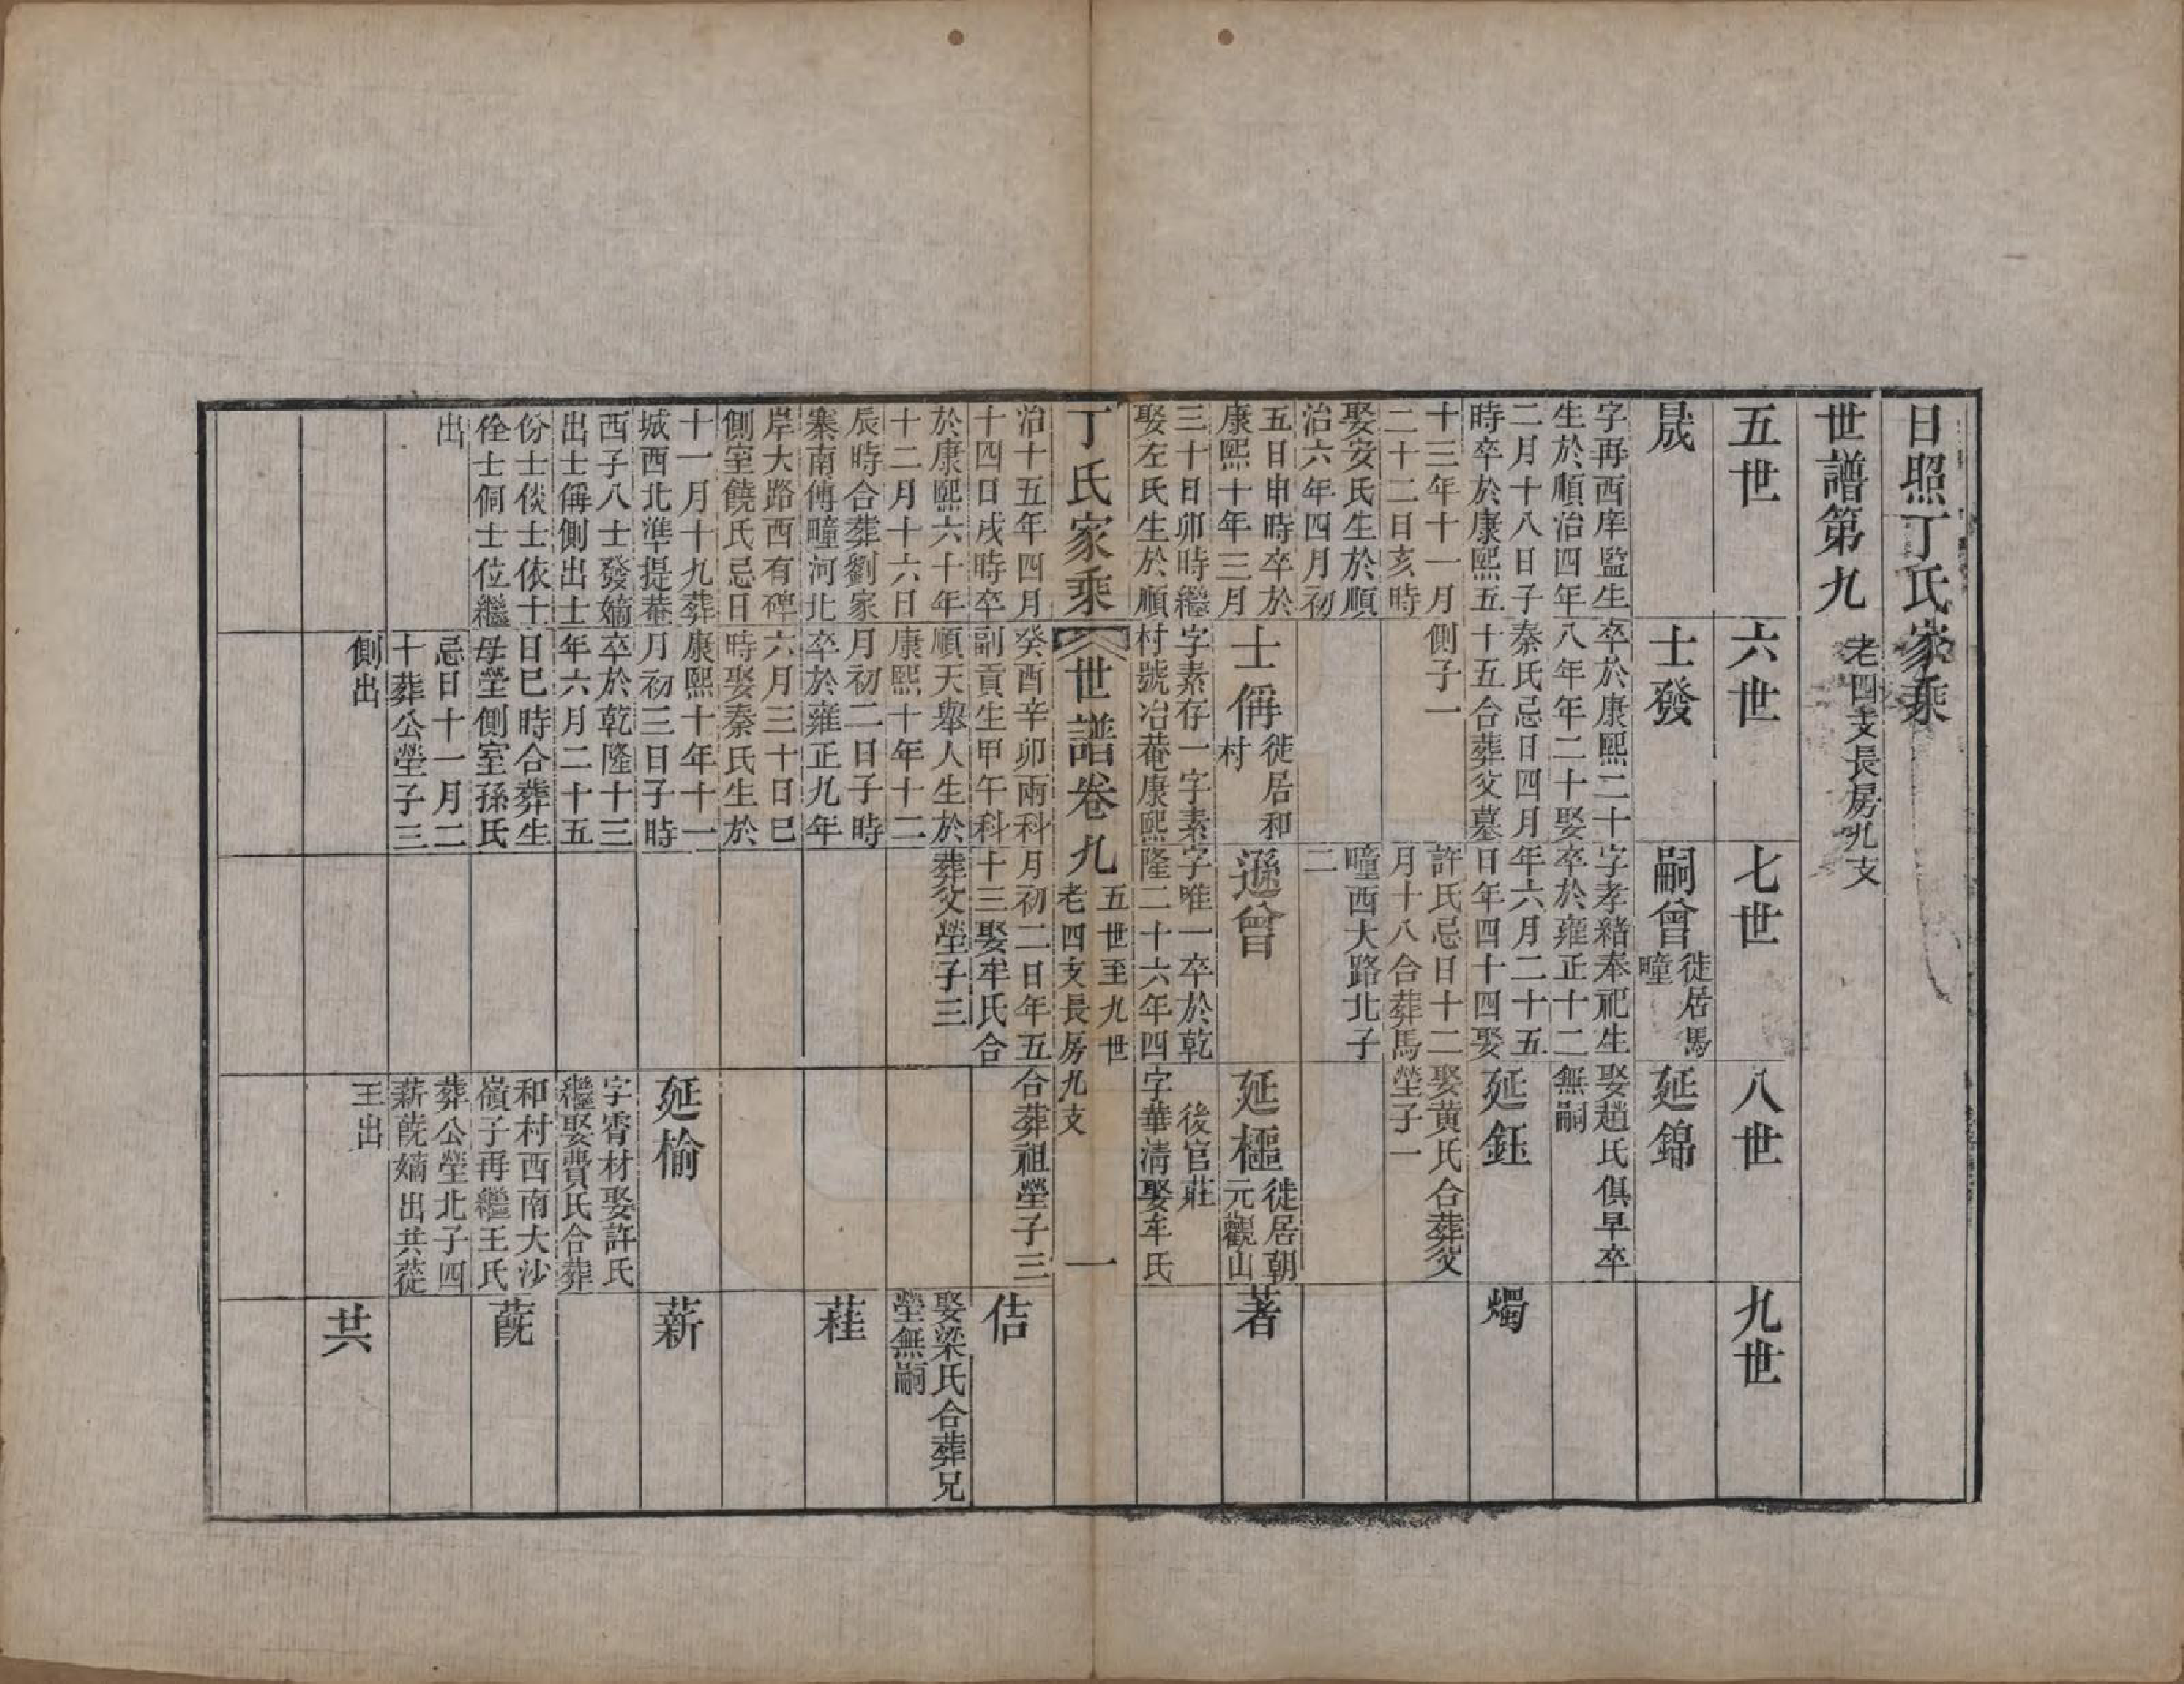 日照丁氏家乘
世譜第九 老四支長房九支
五世
六世
七世
八世
九世
晟
字再西庠監生
生於順治四年
二月十八日子
時卒於康熙五
十三年十一月
二十二日亥時
娶安氏生於順
治六年四月初
五日申時卒於
康熙十年三月
三十日卯時繼
娶左氏生於順
治十五年四月
十四日戌時卒
於康熙六十年
十二月十六日
辰時合葬劉家
寨南傅疃河北
岸大路西有碑
側室饒氏忌日
十一月十九葬
城西北準提菴
西子八士發嫡
出士偁側出士
份士倓士依士
佺士侗士位繼
出
士發
卒於康熙二十
八年年二十娶
秦氏忌日四月
十五合葬父墓
側子一
士偁 徙居和村
字素存一字素
村號冶菴康熙
癸酉辛卯兩科
副貢生甲午科
順天舉人生於
康熙十年十二
月初二日子時
卒於雍正九年
六月三十日巳
時娶秦氏生於
康熙十年十一
月初三日子時
卒於乾隆十三
年六月二十五
日巳時合葬生
母塋側室孫氏
忌日十一月二
十葬公塋子三
側出
嗣曾 徙居馬疃
字孝緒奉祀生
卒於雍正十二
年六月二十五
日年四十四娶
許氏忌日十二
月十八合葬馬
疃西大路北子
二
遜曾
字唯一卒於乾
隆二十六年四
月初二日年五
十三娶牟氏合
葬父塋子三
延錦
娶趙氏俱早卒
無嗣
延鈺
娶黃氏合葬父
塋子一
延樞 徙居朝元觀山
後官莊
字華清娶牟氏
合葬祖塋子三
延楡
字霄材娶許氏
繼娶費氏合葬
和村西南大沙
嶺子再繼王氏
葬公塋北子四
薪蔇嫡出共蓯
王出
燭
著
佶
娶梁氏合葬兄
塋無嗣
蓕
薪
蔇
共
丁氏家乘 世譜卷九 五世至九世 老四支長房九支 一